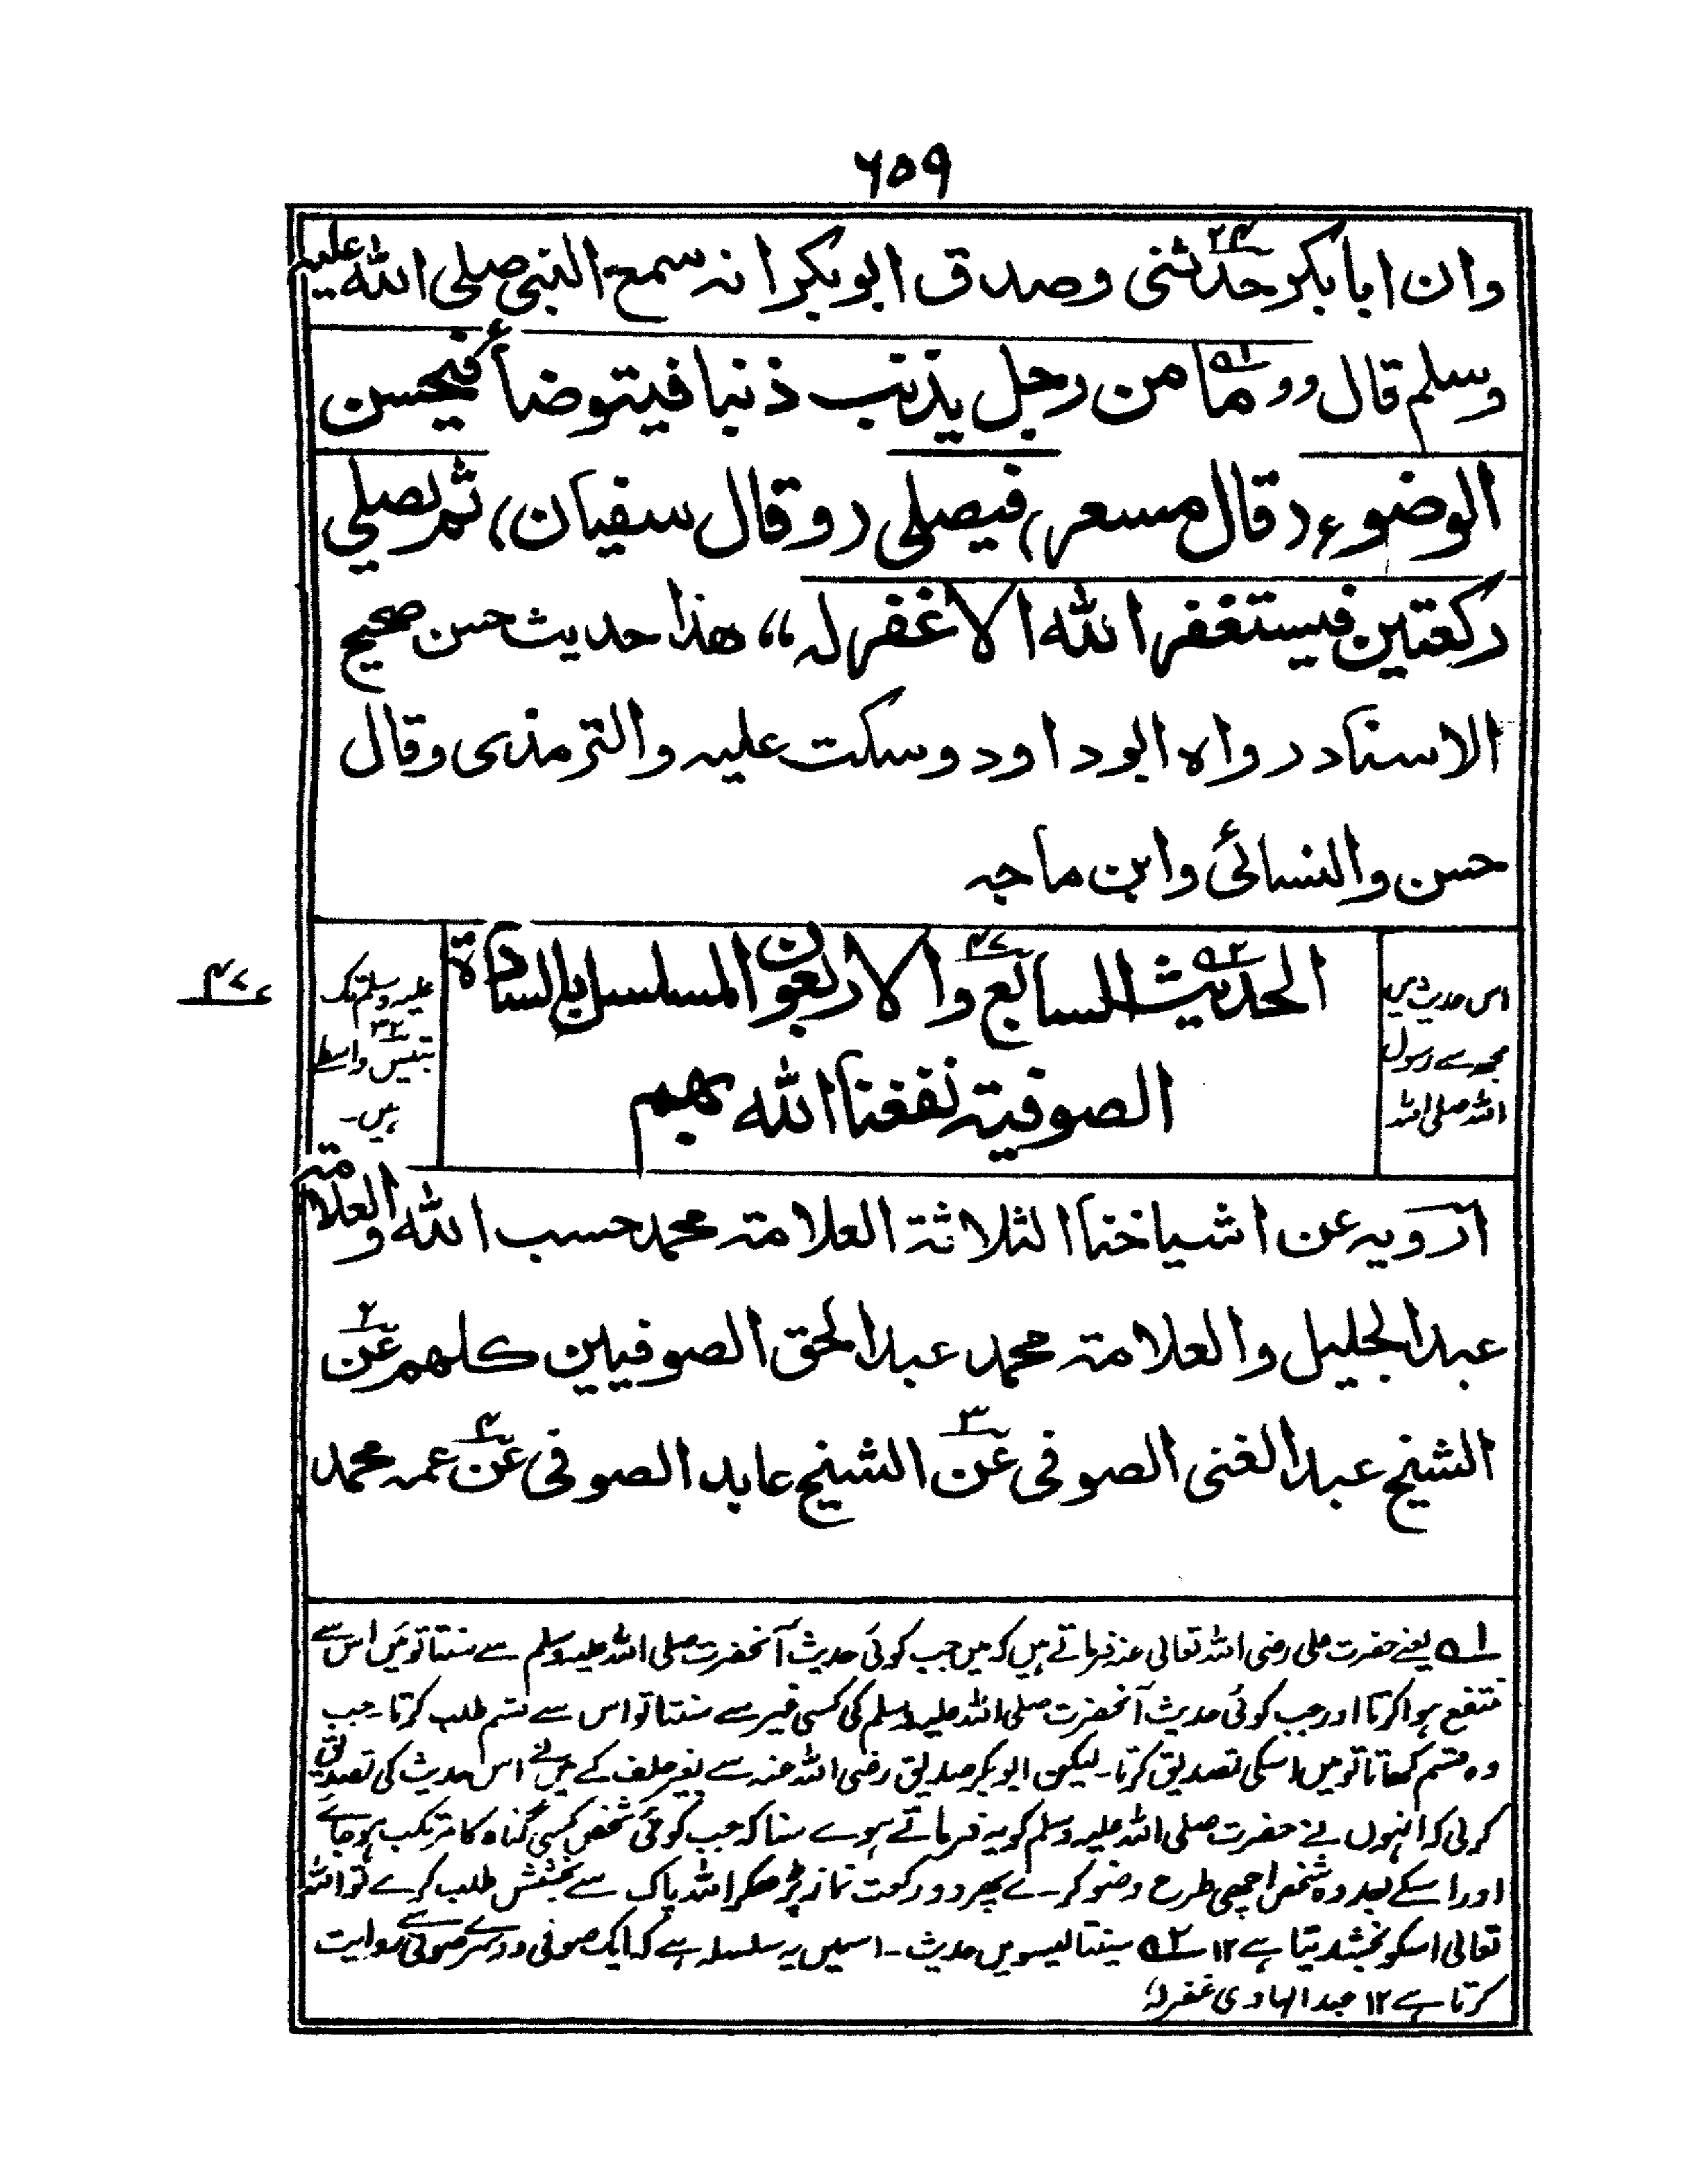 ۶۵۹
وان ابا بكر حدثنى وصدق ابو بكر انه سمع النبى صلى الله عليه
۲۴
وسلم قال وو ما من رجل يذنب ذنبا فيتوضأ فيحسن
الوضوء (قال مسعر) فيصلى (وقال سفيان) ثم يصلي
ركعتين فيستغفر الله الا غفر له ،، هذا حديث حسن صحيح
الاسناد رواه ابو داود وسكت عليه والترمذى وقال
حسن والنسائى وابن ماجه
اس حدیث میں
مجھ سے رسول
اللہ صلی اللہ
الحديث السابع والاربعون المسلسل بالسادة
۴۷
الصوفية نفعنا الله بهم
علیہ وسلم تک
بتیس واسطے
۳۲
ہیں۔
۴۷
ارويه عن اشياخنا الثلاثة العلامة محمد حسب الله والعلامة
عبد الجليل والعلامة محمد عبد الحق الصوفيين كلهم عن
۲
الشيخ عبد الغنى الصوفى عن الشيخ عابد الصوفى عن عمه محمد
۳ ۴
۱ یعنے حضرت علی رضی اللہ تعالی عنہ فرماتے ہیں کہ میں جب کوئی حدیث آنحضرت صلی اللہ علیہ وسلم سے سنتا تو میں اس سے
منتفع ہوا کرتا اور جب کوئی حدیث آنحضرت صلی اللہ علیہ وسلم کی کسی غیر سے سنتا تو اس سے قسم طلب کرتا۔ جب
وہ قسم کھاتا تو میں اسکی تصدیق کرتا۔ لیکن ابوبکر صدیق رضی اللہ عنہ سے بغیر حلف کے میں نے اس حدیث کی تصدیق
کرلی کہ انہوں نے حضرت صلی اللہ علیہ وسلم کو یہ فرماتے ہوے سنا کہ جب کوئی شخص کسی گناہ کا مرتکب ہوجاے
اور اسکے بعد وہ شخص اچھی طرح وضو کرے پھر دو رکعت نماز پڑھکر اللہ پاک سے بخشش طلب کرے تو اللہ
تعالی اسکو بخشدیتا ہے ۱۲ ۲ سینتالیسویں حدیث۔ اسمیں یہ سلسلہ ہے کہ ایک صوفی دوسرے صوفی سے روایت
کرتا ہے ۱۲ عبد الہادی غفرلہ